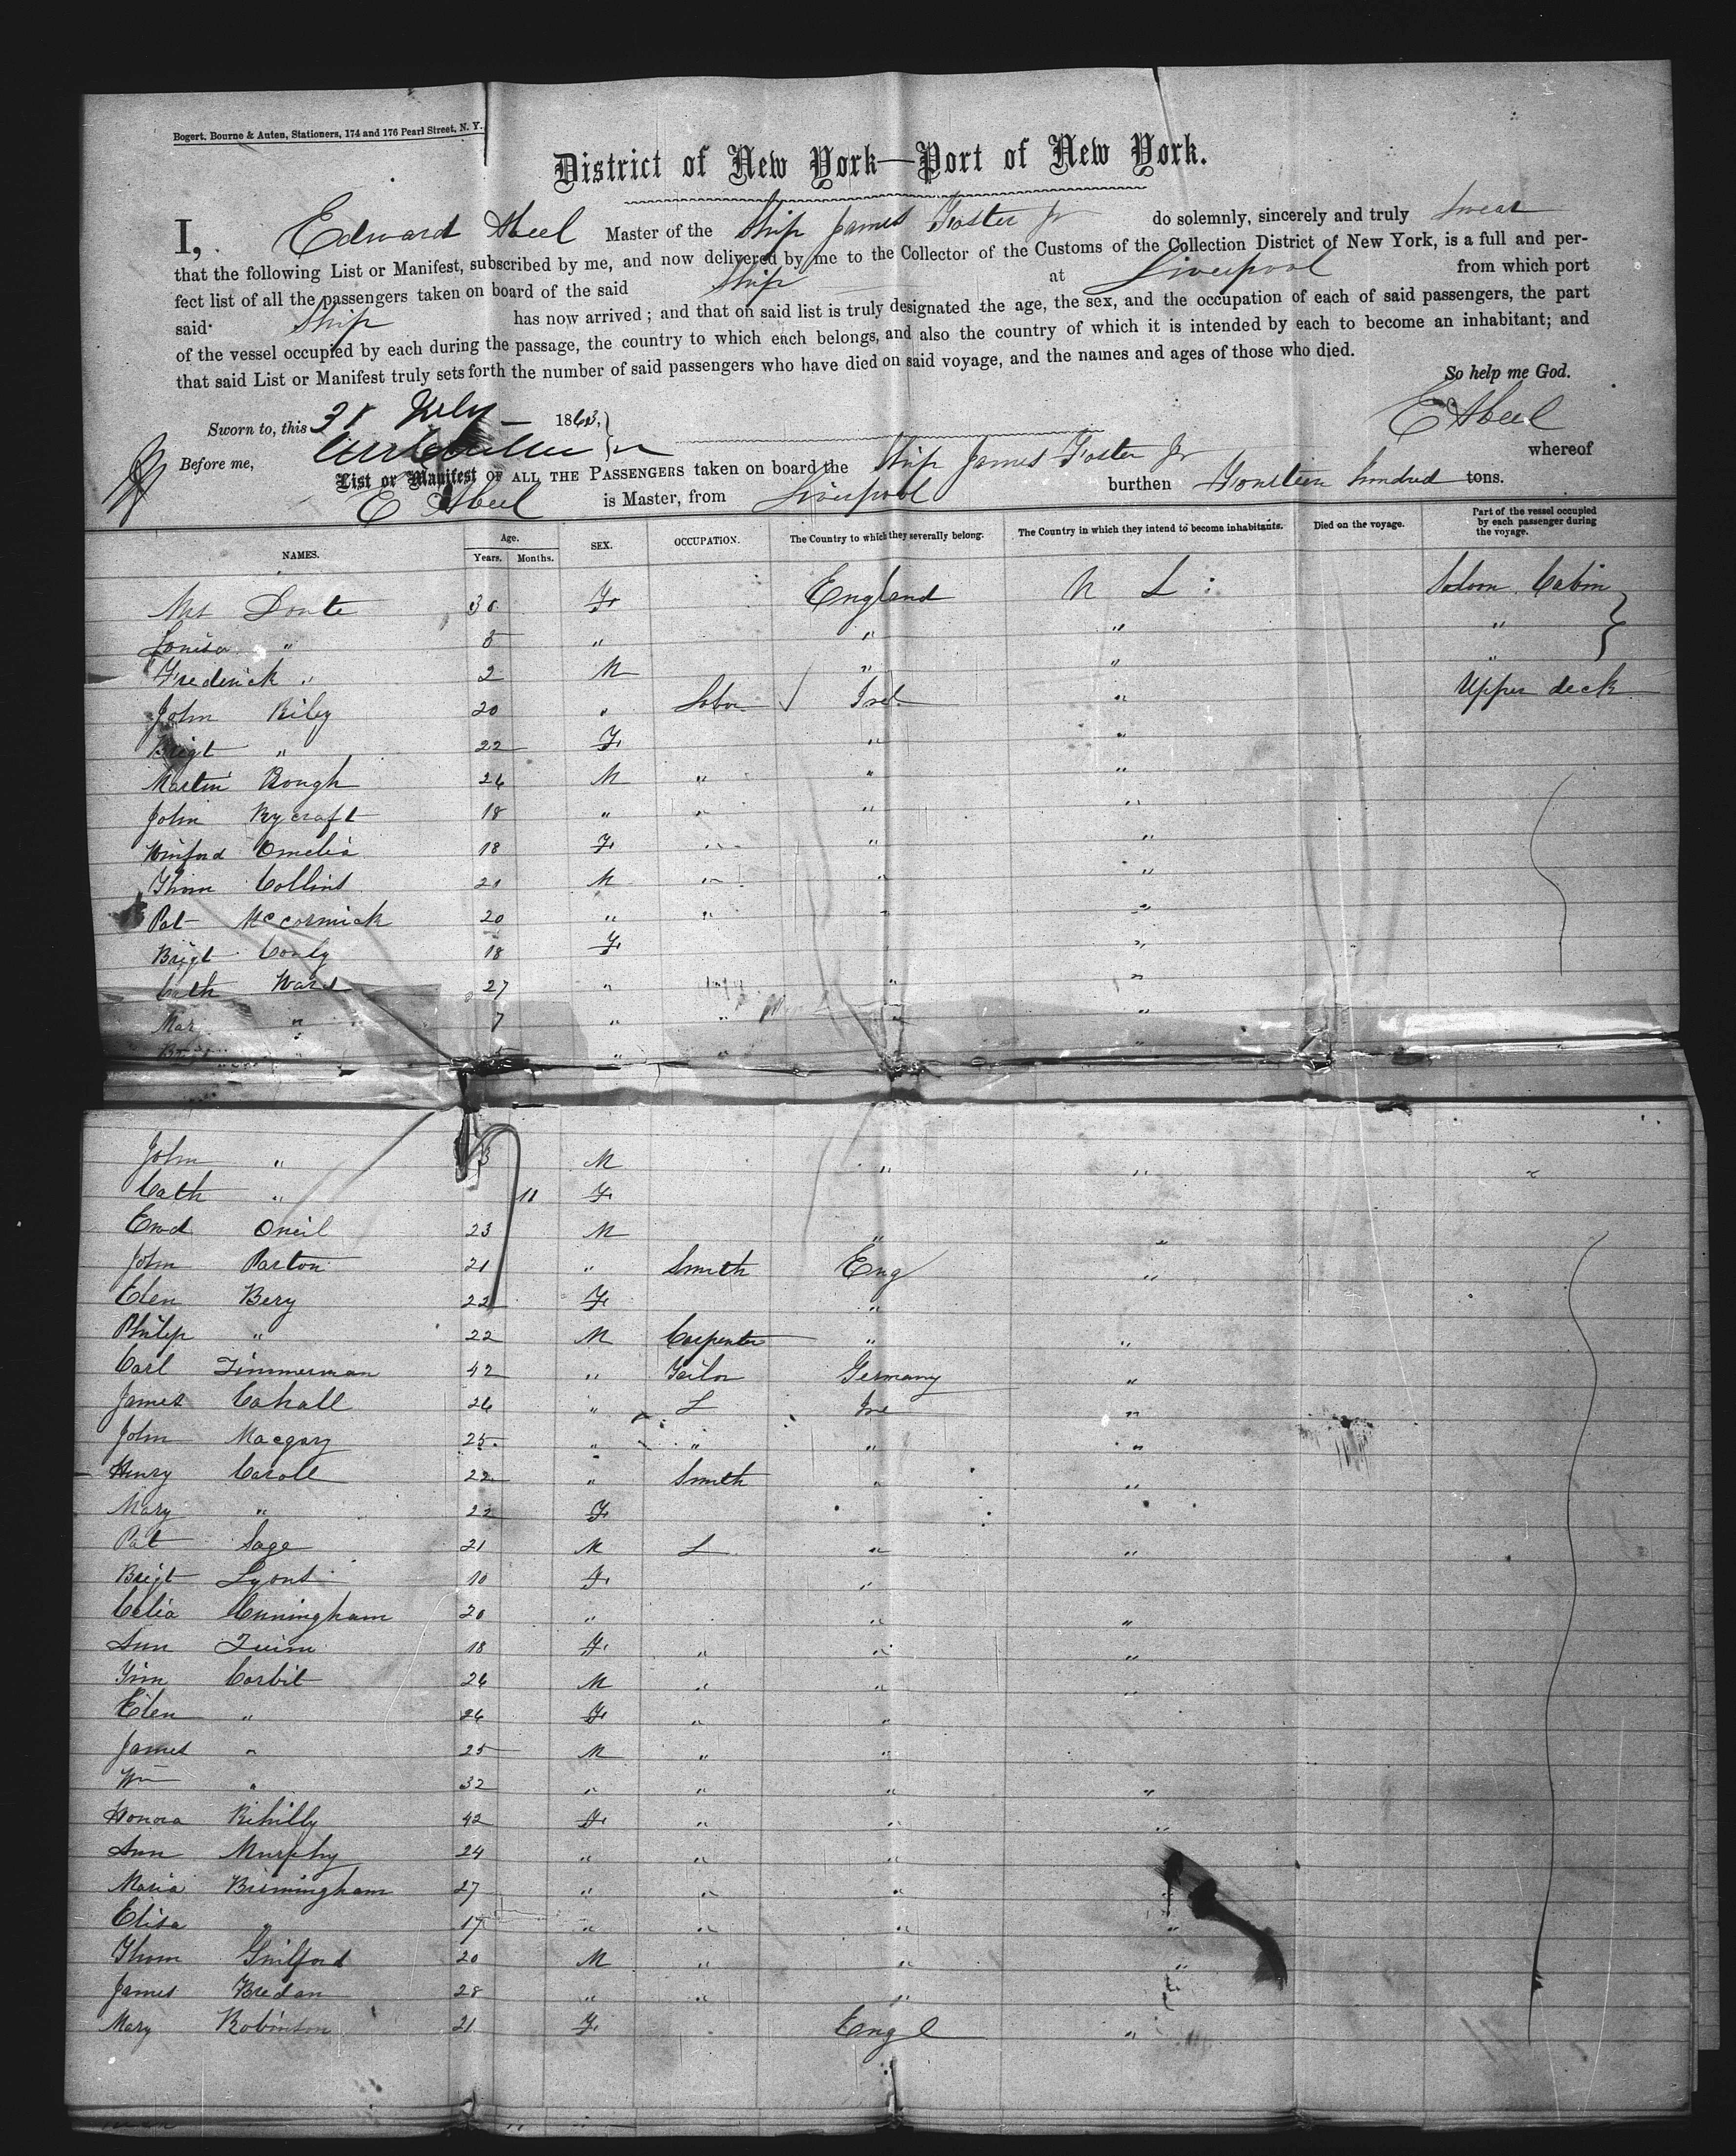 Bogert, Bourne & Auten, Stationers, 174 and 176 Pearl Street, N. Y.
District of New York—Port of New York.
I, Edward Abeel Master of the Ship James Foster Jr do solemnly, sincerely and truly swear
that the following List or Manifest, subscribed by me, and now delivered by me to the Collector of the Customs of the Collection District of New York, is a full and per-
fect list of all the passengers taken on board of the said Ship at Liverpool from which port
said Ship has now arrived; and that on said list is truly designated the age, the sex, and the occupation of each of said passengers, the part
of the vessel occupied by each during the passage, the country to which each belongs, and also the country of which it is intended by each to become an inhabitant; and
that said List or Manifest truly sets forth the number of said passengers who have died on said voyage, and the names and ages of those who died.
So help me God.
Sworn to, this 31 July 1863, E Abeel
Before me,
List or Manifest OF ALL THE PASSENGERS taken on board the Ship James Foster Jr whereof
E Abeel is Master, from Liverpool burthen Fourteen hundred tons.
NAMES. Age. Years. Months. SEX. OCCUPATION. The Country to which they severally belong. The Country in which they intend to become inhabitants. Died on the voyage. Part of the vessel occupied by each passenger during the voyage.
Mrs Doute 30 F England U S Saloon Cabin
Louisa " 5 " " " "
Frederick " 2 M " " "
John Riley 20 " Labor Irel " Upper deck
Brigt " 22 F " "
Martin Bough 26 M " " "
John Rycraft 18 " " " "
Winford Omelia 18 F " " "
Thom Collins 21 M " " "
Pat McCormick 20 " " " "
Brigt Conly 18 F "
Cath Ward 27 " " "
Mar " 7 " " " "
Brigt " " " "
John " 3 M " " "
Cath " 11 F
Ewd Oneil 23 M " "
John Parton 21 " Smith Eng "
Elen Bery 22 F "
Philip " 22 M Carpenter " "
Carl Zimmerman 42 " Tailor Germany "
James Cahall 26 " L Ire "
John Macgary 25 " " " "
Henry Caroll 22 " Smith " "
Mary " 22 F
Pat Sage 21 M L " "
Brigt Lyons 10 F "
Celia Cunningham 20 " " "
Ann Quinn 18 F " " "
Tim Corbit 26 M " " "
Elen " 26 F " "
James " 25 M " "
Wm " 32 " " " "
Honora Rihilly 42 F " " "
Ann Murphy 24 " " "
Maria Birmingham 27 " " " "
Elisa " 17 " " " "
Thom Guilford 20 M " " "
James Bredan 28 " " "
Mary Robinson 21 F Engl "